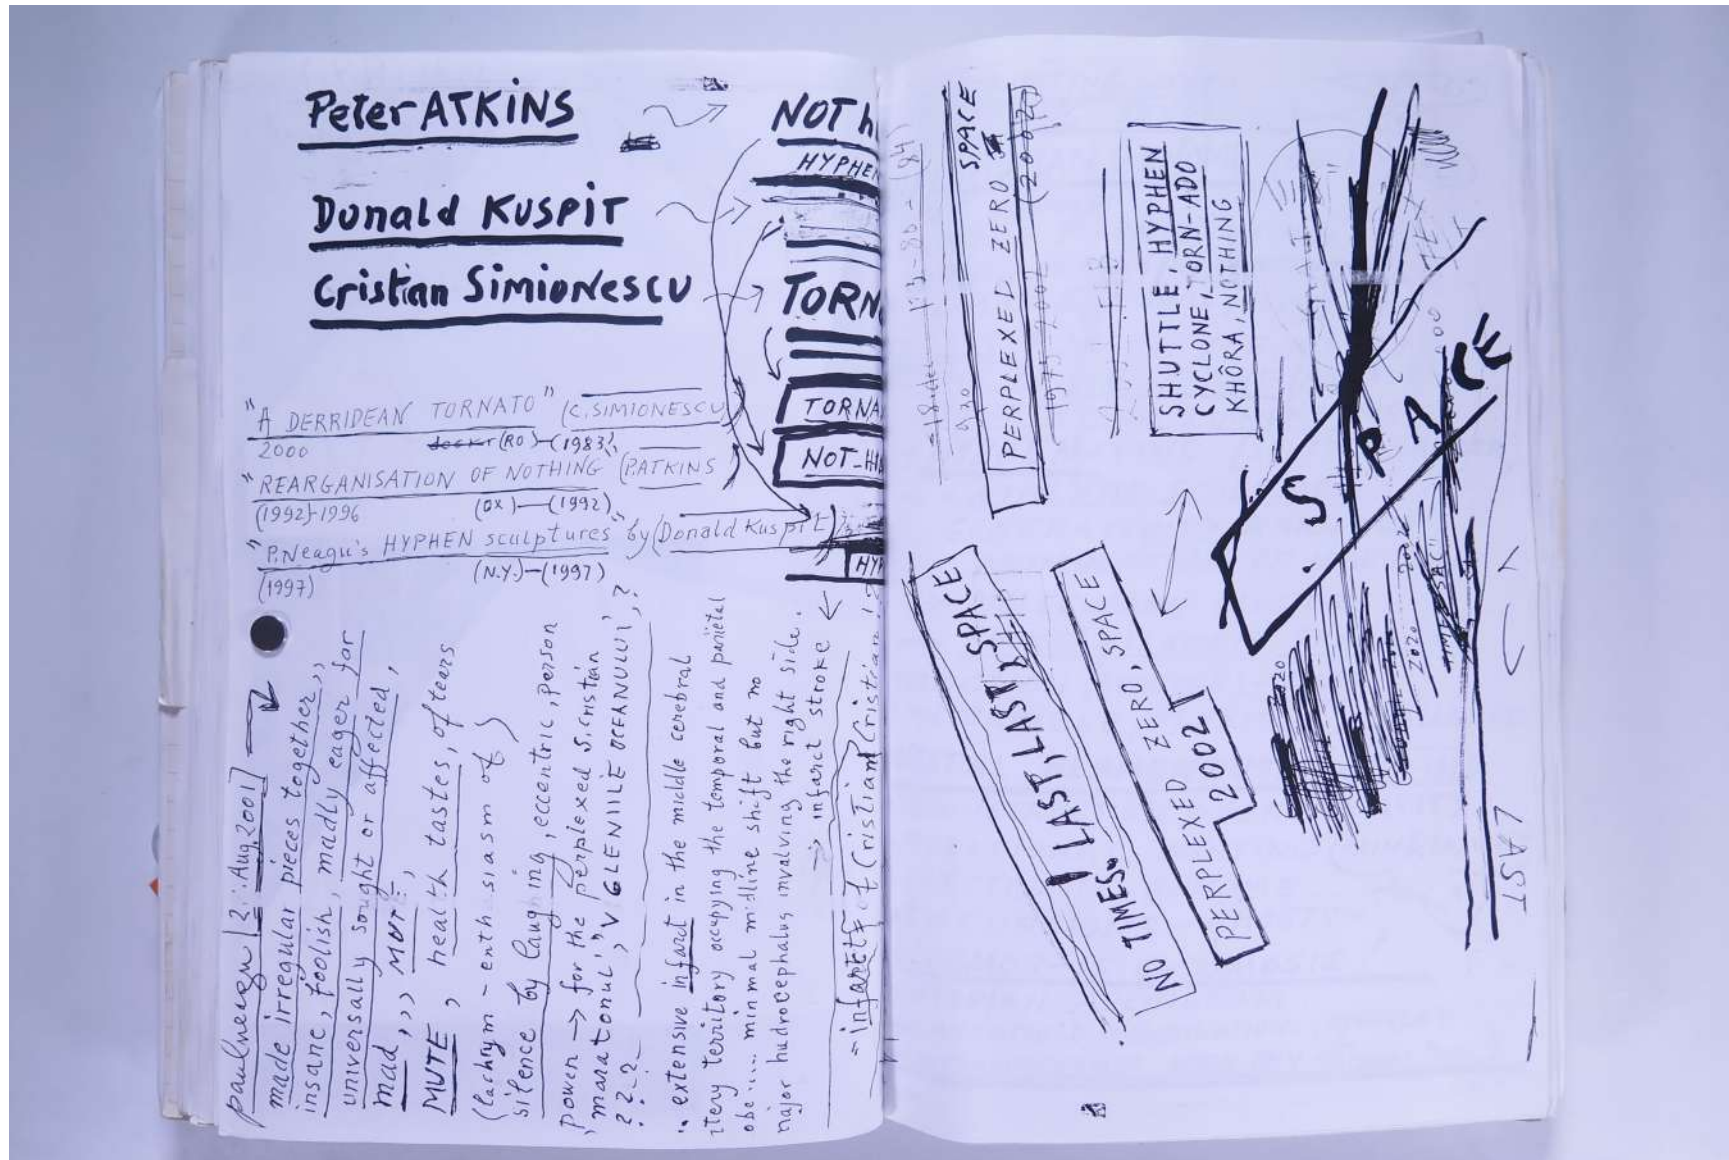 Peter ATKINS
Donald KUSPIT
Cristian SIMIONESCU
NOT h
HYPHE
TORN
TORNA
NOT-HI
HYP
"A DERRIDEAN TORNATO" (C. SIMIONESCU)
2000 (RO)—(1983),
"REARGANISATION OF NOTHING (P.ATKINS
(1992)-1996 (OX)—(1992)
"P.Neagu's HYPHEN sculptures" by (Donald KuspiT)
(1997) (N.Y.)—(1997)
paulneagu [2.:Aug.2001]
made irregular pieces together,
insane, foolish, madly eager for
universally sought or affected,
mad,,, MUTE,
MUTE, health tastes, of tears
(lachrym - enthasiasm of )
silence by laughing, eccentric, person
power → for the perplexed S.cristian
, maratonul", "VIGLENIILE OCEANULUI",?
???
" extensive infarct in the middle cerebral
rtery territory occupying the temporal and parietal
obe...... minimal midline shift but no
major hudrocephalus involving the right side.
→ infarct stroke
SPACE
PERPLEXEL ZERO
(2002)
1975-2002
SHUTTLE, HYPHEN
CYCLONE, TORN-ADO
KHÔRA, NOTHING
SPACE
NO TIMES, LAST, LAST, SPACE
PERPLEXED ZERO, SPACE
2002
2020
2020
LAST